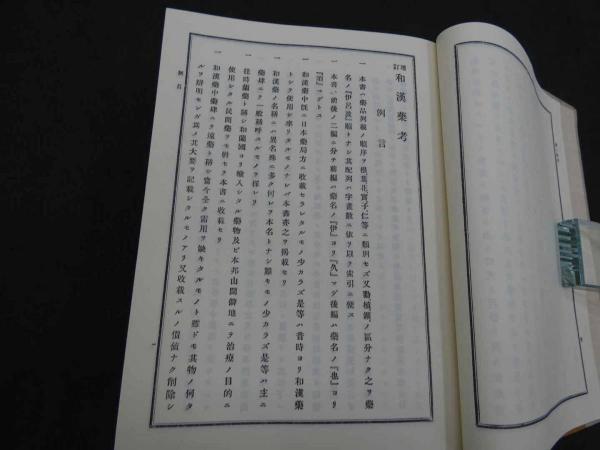 増訂 和漢薬考
例言
一 本書ハ薬品列載ノ順序ヲ根葉花實子仁等ニ類別セズ又動植鑛ノ區分ナク之ヲ薬
名ノ『伊呂波』順トナシ其配列ハ字畫數ニ依リ以テ索引ニ便ス
一 本書ハ前後ノ二編ニ分チ前編ハ薬名ノ『伊』ヨリ『久』マデ後編ハ薬名ノ『也』ヨリ
『須』マデトス
一 和漢薬中既ニ日本薬局方ニ收載セラレタルモノ少カラズ是等ハ昔時ヨリ和漢薬
トシテ使用シ來リタルモノナレバ本書亦之ヲ掲載セリ
一 和漢薬ノ名稱ニハ異名殊ニ多ク何レヲ本名トナシ難キモノ少カラズ是等ハ主ニ
薬肆ニテ一般稱呼スルモノヲ採レリ
一 往時蘭薬ト稱シ和蘭國ヨリ輸入シタル薬物及ビ本邦山間僻地ニテ治療ノ目的ニ
使用シタル民間薬ヲモ併セテ本書ニ收載セリ
一 和漢薬中薬肆ニテ遠薬ト稱シ當今全ク需用ヲ缺キタルモノト雖ドモ其物ノ何タ
ルヲ辯明センガ爲メ其大要ヲ記載シタルモノアリ又收載スルノ價値ナク削除シ
例言
一